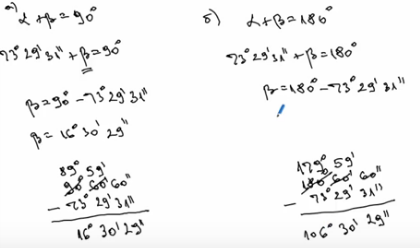 а)
α+β=90°
73°29'31"+β=90°
β=90°-73°29'31"
β=16°30'29"
89° 59'
90° 60' 60"
- 73° 29' 31"
16° 30' 29"
б)
α+β=180°
73°29'31"+β=180°
β=180°-73°29'31"
179° 59'
180° 60' 60"
- 73° 29' 31"
106° 30' 29"